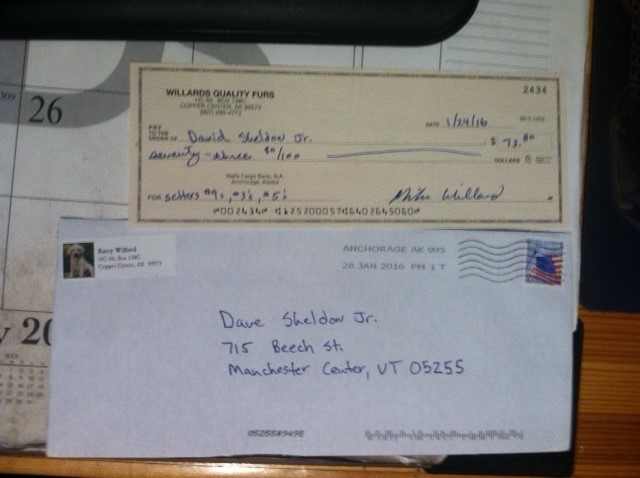 26
WILLARDS QUALITY FURS
HC 60 BOX 138C
COPPER CENTER, AK 99573
2434
DATE 1/24/16
PAY TO THE ORDER OF David Sheldon Jr. $ 73.80
seventy-three 80/100 DOLLARS
Wells Fargo Bank, N.A.
Anchorage, Alaska
FOR setters #9s, #3's, #5's Mike Willard
Barry Willard
HC 60, Box 138C
Copper Center, AK 99573
ANCHORAGE AK 995
28 JAN 2016 PM 1 T
Dave Sheldon Jr.
715 Beech St.
Manchester Center, VT 05255
0525589498